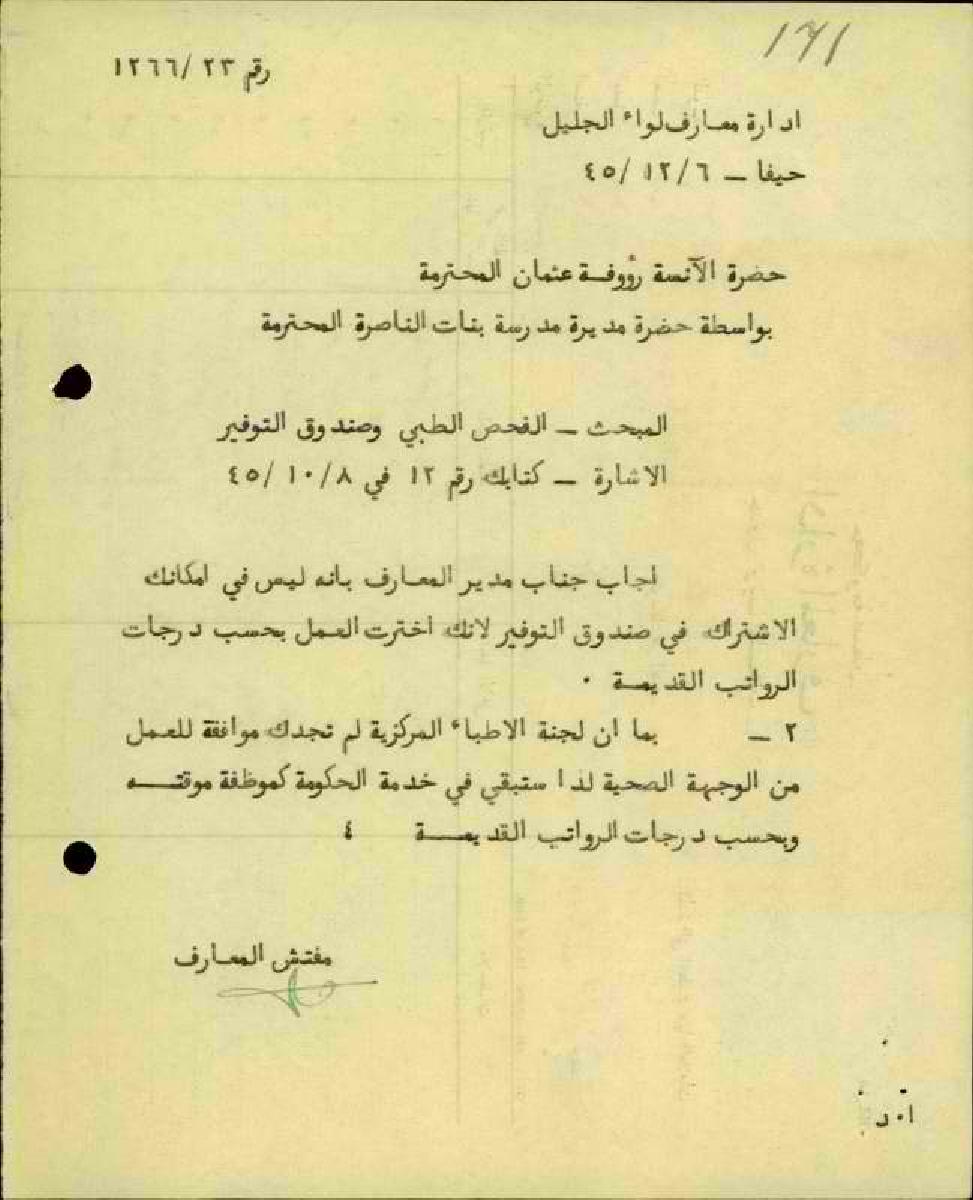 171
رقم ٢٣/ ١٢٦٦
ادارة معارف لواء الجليل
حيفا – ٦/ ١٢/ ٤٥
حضرة الآنسة رؤوفة عثمان المحترمة
بواسطة حضرة مديرة مدرسة بنات الناصرة المحترمة
المبحث – الفحص الطبي وصندوق التوفير
الاشارة – كتابك رقم ١٢ في ٨/ ١٠/ ٤٥
اجاب جناب مدير المعارف بانه ليس في امكانك
الاشتراك في صندوق التوفير لانك اخترت العمل بحسب درجات
الرواتب القديمة ٠
٢ – بما ان لجنة الاطباء المركزية لم تجدك موافقة للعمل
من الوجهة الصحية لذا ستبقي في خدمة الحكومة كموظفة موقتــه
وبحسب درجات الرواتب القديمــة ٤
مفتش المعارف
أ٠د